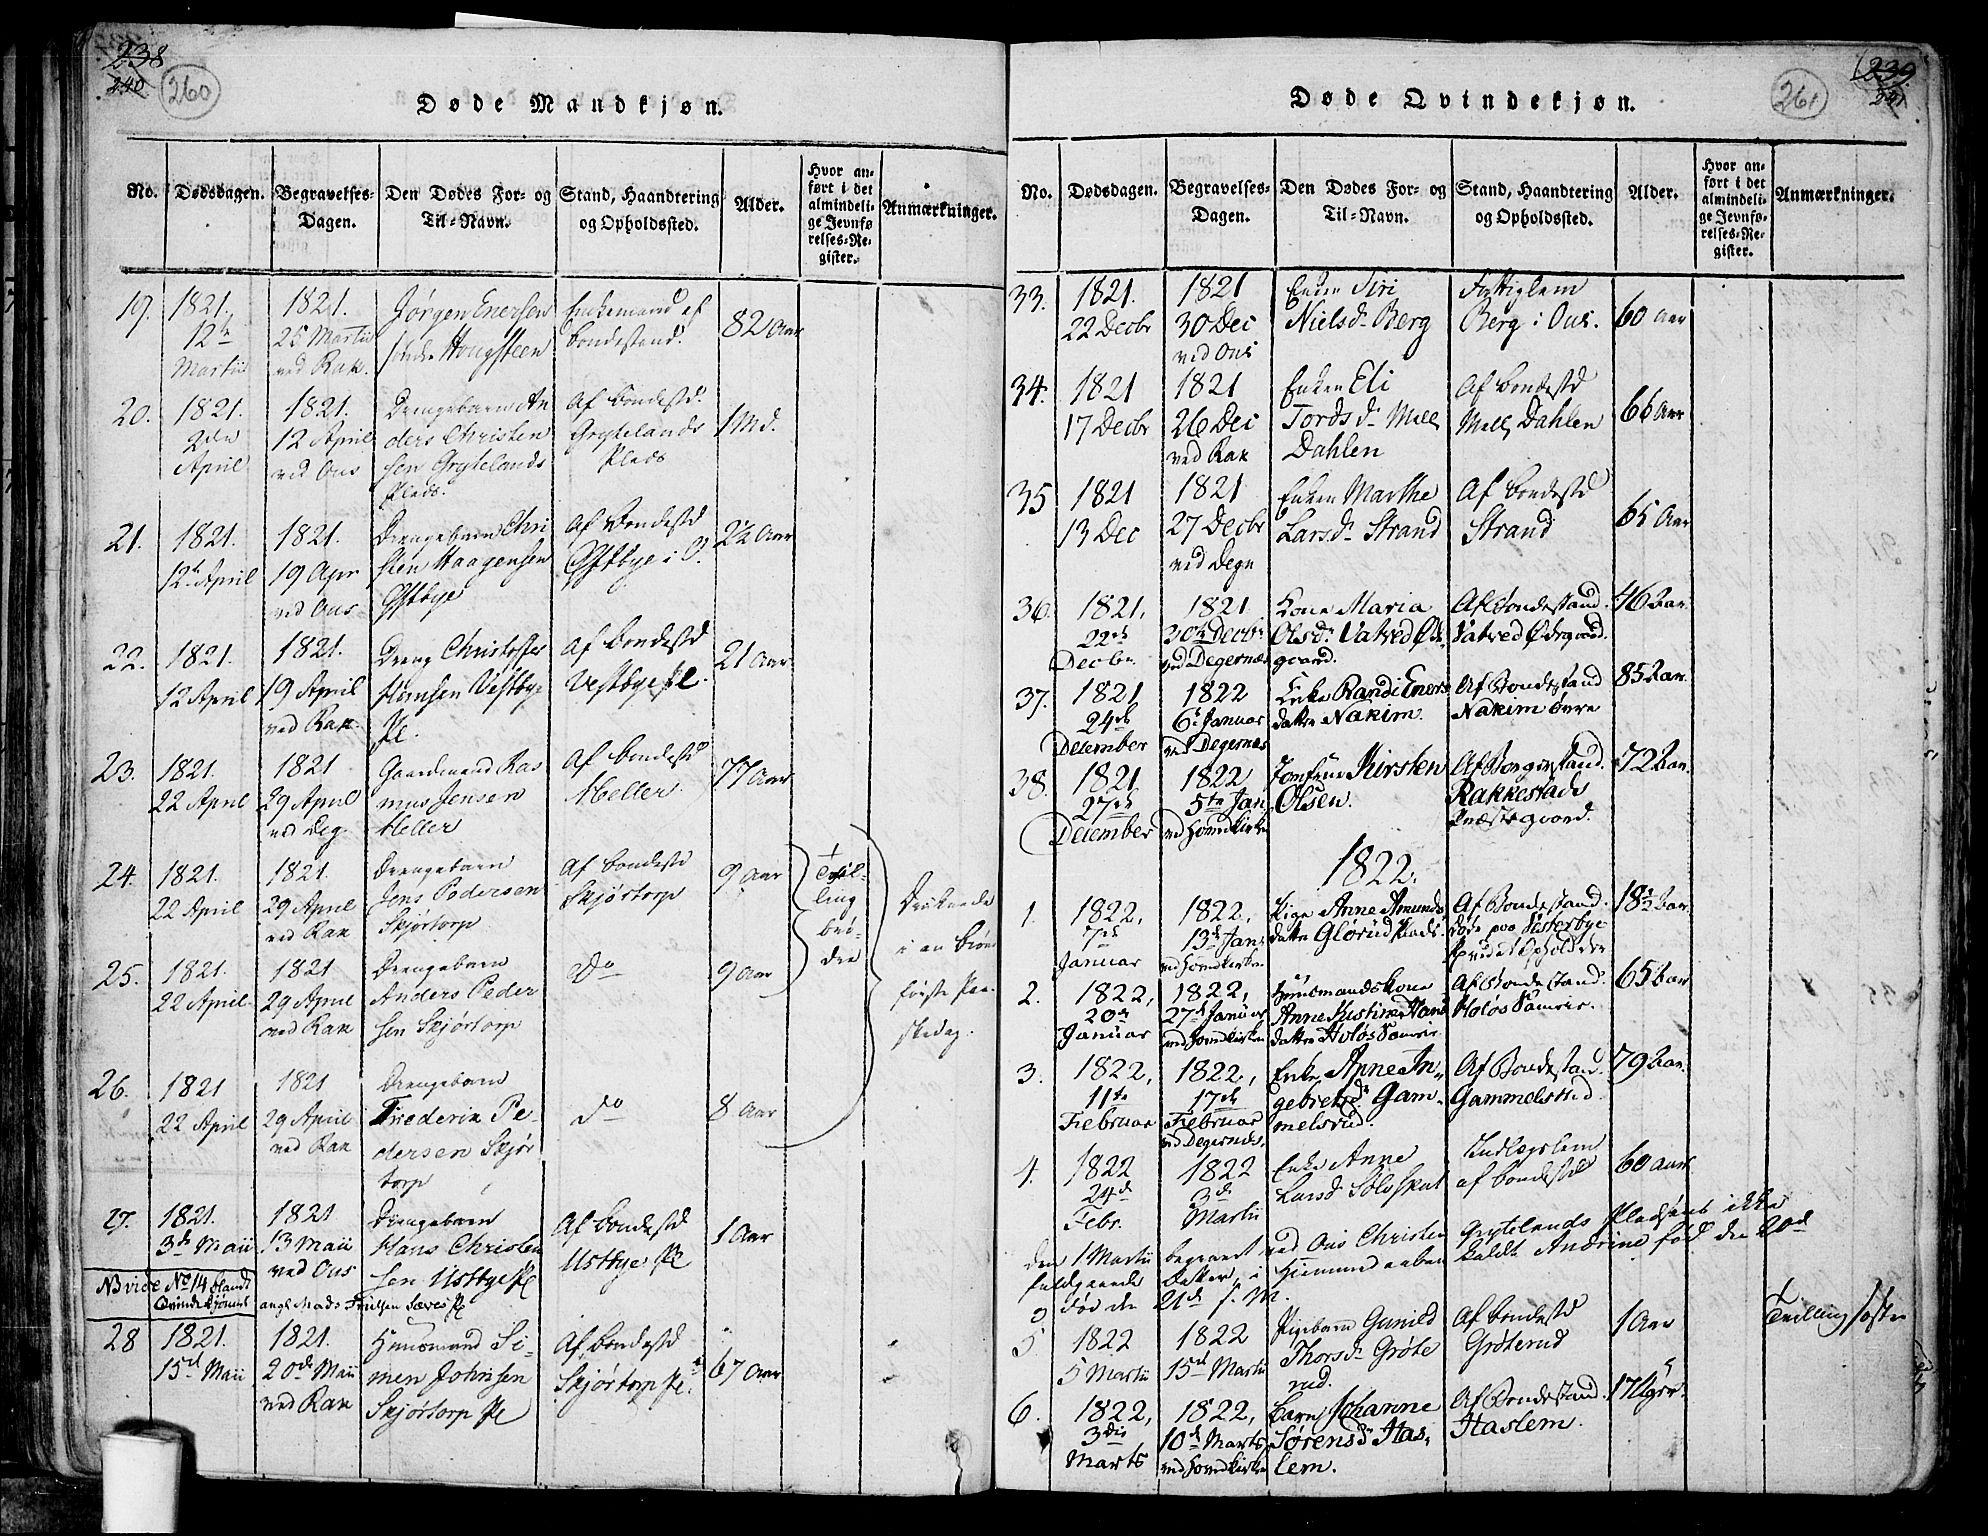 238
240
260
Døde Mandkjøn.
No.
Dødsdagen.
Begravelses-
Dagen.
Den Dødes For- og
Til-Navn.
Stand, Haandtering
og Opholdssted.
Alder.
Hvor an-
ført i det
almindeli-
ge Jevnfø-
relses-Re-
gister.
Anmærkninger.
19.
1821.
12te
Martii
1821.
25 Martii
ved Rak.
Jørgen Enersen
søndre Hougsteen
Enkemand af
bondestand.
82 Aar
20.
1821.
2den
April
1821.
12 April
ved Ous
Drengebarn An
ders Christen
sen Grytelands
Plads.
Af bondestd.
Grytelands
Plads
1 Md.
21.
1821.
12te April
1821.
19 Apr
ved Ous
Drengebarn Chri
sten Haagensen
Østbye
Af bondestd
Østbye i O.
2½ Aar
22.
1821.
12 April
1821.
19 April
ved Rak
Dreng Christoffer
Hansen Vestbye
Pl.
Af bondestd
Vestbye Pl.
21 Aar
23.
1821.
22 April
1821
29 April
ved Deg
Gaardmand Ras
mus Jensen
Heller
Af bondestd
Heller.
77 Aar
24.
1821.
22 April
1821.
29 April
ved Rak
Drengebarn
Jens Pedersen
Skjørtorp
Af bondestd
Skjørtorp
9 Aar
Tvil-
ling
brø-
dre
Druknede
i en brønd
første Paa-
skedag.
25.
1821.
22 April.
1821
29 April
ved Rak
Drengebarn
Anders Peder
sen Skjørtorp
Do
9 Aar
26.
1821
22 April
1821
29 April
ved Rak
Drengebarn
Friederik Pe-
dersen Skjør
torp
Do
8 Aar
27.
1821.
3de Maii
1821
13 Maii
ved Ous
Drengebarn
Hans Christen
sen Ustbye Pl
Af bondestd
Ustbye Pl
1 Aar
NB vide No 14 blandt
Qvindekjønnet
angl. Mads
28
1821.
15de Maii
1821.
20de Maii
ved Rak
Huusmand Si-
men Johnsen
Skjørtorp Pl
Af bondestd
Skjørtorp Pl.
67 Aar
239
241
261
Døde Qvindekjøn.
No.
Dødsdagen.
Begravelses-
Dagen.
Den Dødes For- og
Til-Navn.
Stand, Haandtering
og Opholdssted.
Alder.
Hvor an-
ført i det
almindeli-
ge Jevnfø-
relses-Re-
gister.
Anmærkninger.
33.
1821.
22 Decbr
1821
30 Dec
ved Ous
Enken Siri
Nielsd. Berg
Fattiglem
Berg i Ous.
60 Aar
34.
1821
17 Decbr
1821
26 Dec
ved Rak
Enken Eli
Tordsd. Mell
Dahlen
Af bondestd
Mell Dahlen
66 Aar
35
1821
13 Dec
1821
27 Decbr
ved Degn
Enken Marthe
Larsd. Strand
Af bondestd
Strand
65 Aar
36.
1821.
22de
Decbr.
1821
30te Decbr
ved Degernæs
Kone Maria
Olsdr. Vatved Øde
gaard.
Af Bondestand.
Vatved Ødegaard.
46 Aar.
37.
1821
24de
December
1822
6te Januar
ved Degernæs
Enke Randi Eners-
datter Nakim.
Af Bondestand
Nakim øvre
85 Aar.
38.
1821
27de
December
1822
5te Jan.
ved Hovedkirken
Jomfrue Kirsten
Olsen.
Af Borgerstand.
Rakkestads
Præstegaard.
72 Aar.
1822.
1.
1822,
7de
Januar
1822,
13de Jan.
ved Hovedkirken
Pige Anne Amunds
datter Glørud Plads.
Af Bondestand.
døde paa Vesterbye
18½ Aar.
2.
1822,
20de
Januar
1822,
27de Januar
ved Hovedkirken
Huusmandskone
Anne Kistine Hans
datter Holøs
Af Bondestand.
Holøs
65 Aar
3.
1822,
11te
Februar
1822,
17de
Februar
ved Degernæs.
Enke Anne In-
gebretsdr Gam-
melsrud.
Af Bondestand.
Gammelsrud.
79 Aar.
4.
1822
24de
Febr.
1822
3de
Martii
Enke Anne
Larsd. Sølvskut
Indlægslem
af bondestd
60 Aar
den 1 Martii begravet ved Ous Christen Grytelands Pladsens ikke
fuldgaaende Datter, i Hiemmedaaben kaldt Andrine fød den 20de
og død den 21de f. M.
5
1822
5 Martii
1822
15de Martii
Pigebarn Gunild
Thorsd. Grøte
rud.
Af bondestd
Grøterud
1 Aar
Tvillingsøster
6.
1822,
3die
Marts
1822,
10de Marts
ved Hovedkirken
Barn Johanne
Sørensdr Has-
lem.
Af Bondestand.
Haslem.
17 Uger.